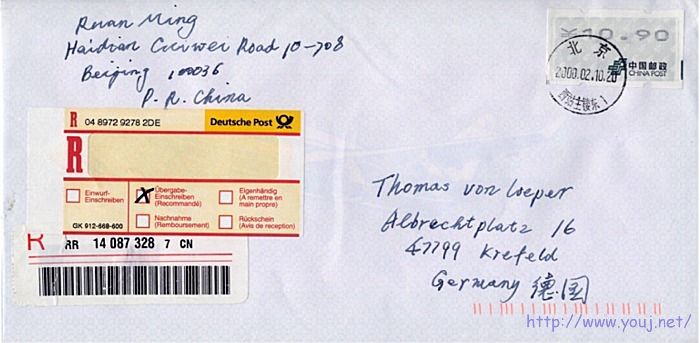 Ruan Ming
Haidian Cuiwei Road 10-708
Beijing 100036
P. R. China
¥10.90
中国邮政
CHINA POST
北京
2000.02.10.20
R 04 8972 9278 2DE
Deutsche Post
R
Einwurf-
Einschreiben
Übergabe-
Einschreiben
(Recommandé)
Eigenhändig
(A remettre en
main propre)
Nachnahme
(Remboursement)
Rückschein
(Avis de reception)
GK 912-668-600
R
RR 14 087 328 7 CN
Thomas von Loeper
Albrechtplatz 16
47799 Krefeld
Germany 德国
http://www.youj.net/